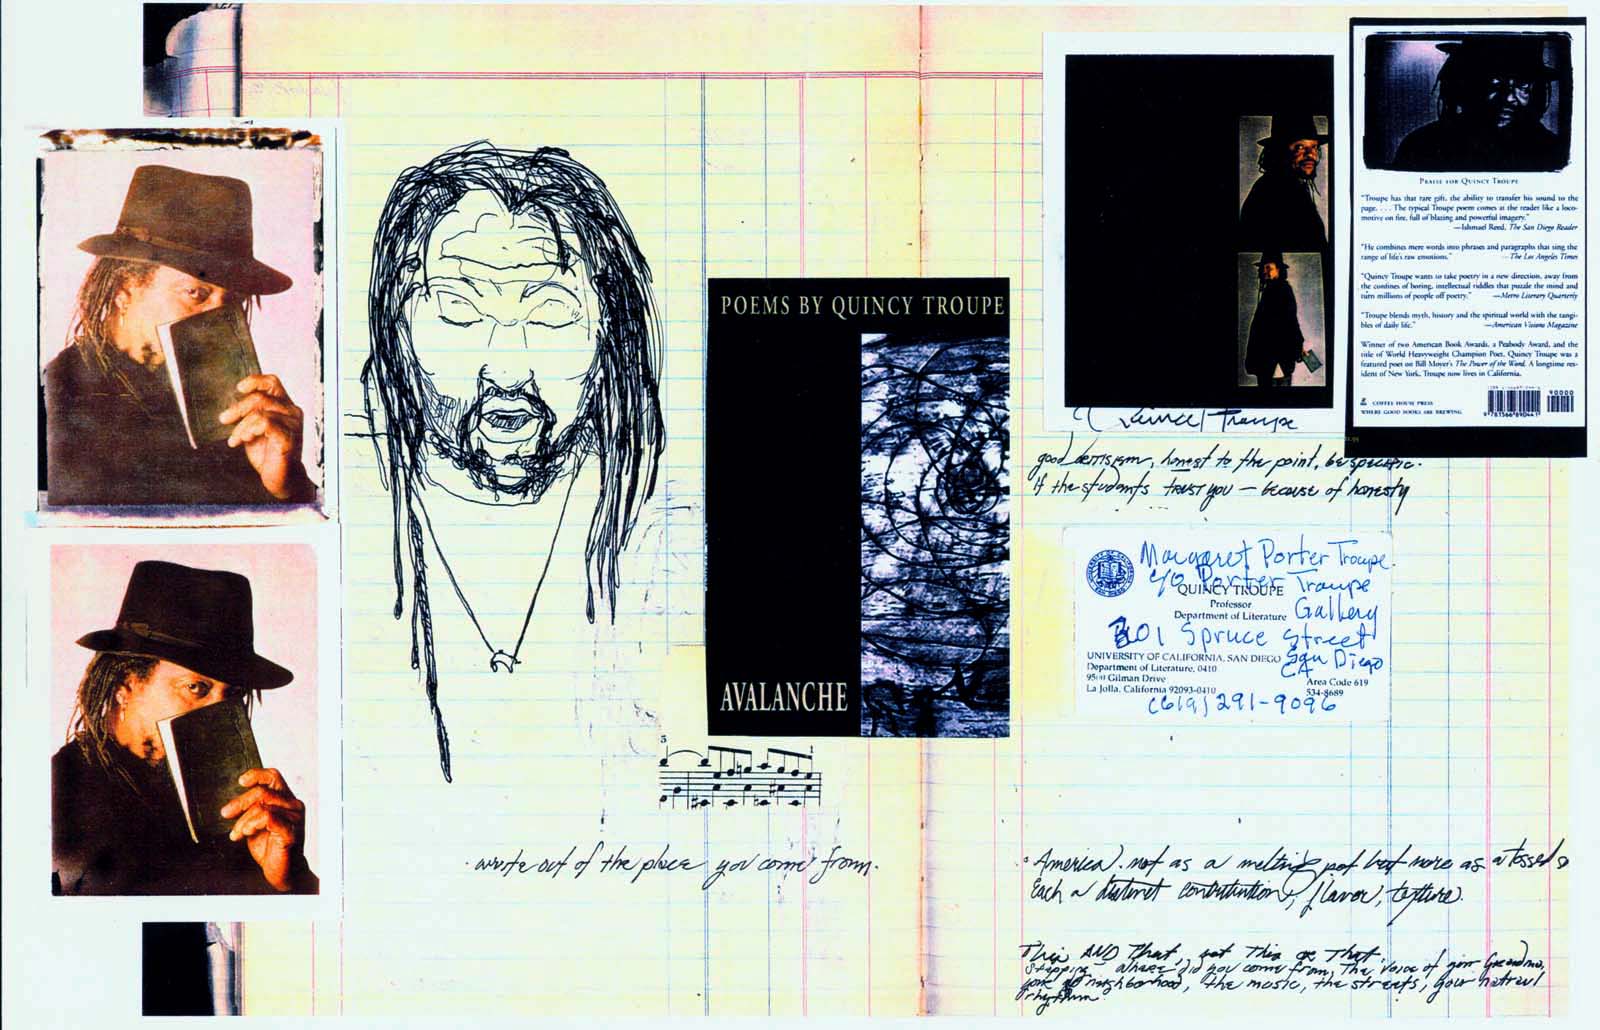 POEMS BY QUINCY TROUPE
AVALANCHE
3
1
. write out of the place you come from.
PRAISE FOR QUINCY TROUPE
"Troupe has that rare gift, the ability to transfer his sound to the
page. . . . The typical Troupe poem comes at the reader like a loco-
motive on fire, full of blazing and powerful imagery."
—Ishmael Reed, The San Diego Reader
"He combines mere words into phrases and paragraphs that sing the
range of life's raw emotions." —The Los Angeles Times
"Quincy Troupe wants to take poetry in a new direction, away from
the confines of boring, intellectual riddles that puzzle the mind and
turn millions of people off poetry." —Metro Literary Quarterly
"Troupe blends myth, history and the spiritual world with the tangi-
bles of daily life." —American Visions Magazine
Winner of two American Book Awards, a Peabody Award, and the
title of World Heavyweight Champion Poet, Quincy Troupe was a
featured poet on Bill Moyer's The Power of the Word. A longtime res-
ident of New York, Troupe now lives in California.
COFFEE HOUSE PRESS
WHERE GOOD BOOKS ARE BREWING
90000
9 781566 890441
Troupe
good, honest to the point, be specific.
If the students trust you — because of honesty
Margaret Porter Troupe
c/o Porter Troupe
QUINCY TROUPE
Professor
Gallery
Department of Literature
301 Spruce Street
UNIVERSITY OF CALIFORNIA, SAN DIEGO
San Diego
CA
Department of Literature, 0410
9500 Gilman Drive
La Jolla, California 92093-0410
Area Code 619
534-8689
(619) 291-9096
America. not as a melting pot but more as a tossed
Each a distinct contribution, flavor, texture.
This AND That, not This or That.
Stepping – where did you come from, the voice of your Grandma,
your neighborhood, the music, the streets, your natural
rhythm.